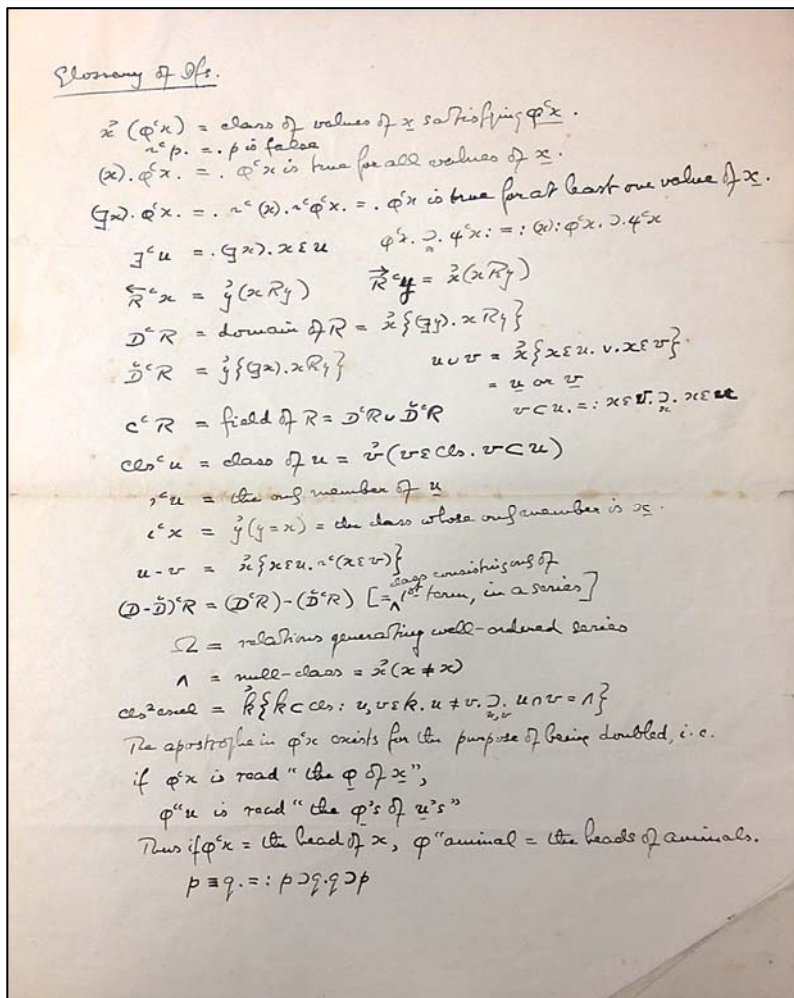 Glossary of Dfs.
x̓ (φ‘x) = class of values of x satisfying φ‘x.
~‘p. = . p is false
(x). φ‘x. = . φ‘x is true for all values of x.
(ƎX). φ‘x. = . ~‘(x). ~‘φ‘x. = . φ‘x is true for at least one value of x.
Ǝ‘u = . (Ǝx). x ε u φ‘x. ⊃ₓ. ψ‘x : = : (x): φ‘x. ⊃. ψ‘x
R⃖‘x = y̓(xRy) R⃗‘y = x̓(xRy)
D‘R = domain of R = x̓{(Ǝy). xRy}
D̆‘R = y̓{(Ǝx). xRy} u ∪ v = x̓{x ε u. v. x ε v}
= u or v
C‘R = field of R = D‘R ∪ D̆‘R v ⊂ u. = : x ε v. ⊃ₓ. x ε u
cls‘u = class of u = v̓(v ε cls. v ⊂ u)
℩‘u = the only member of u
ι‘x = y̓(y = x) = the class whose only member is x.
u - v = x̓{x ε u. ~‘(x ε v)}
(D - D̆)‘R = (D‘R) - (D̆‘R) [= class consisting only of 1st term, in a series]
Ω = relations generating well-ordered series
Λ = null-class = x̓(x ≠ x)
cls²excl = k̓{k ⊂ cls : u, v ε k. u ≠ v. ⊃ᵤ,ᵥ. u ∩ v = Λ}
The apostrophe in φ‘x exists for the purpose of being doubled, i.e.
if φ‘x is read “the φ of x”,
φ“u is read “the φ's of u's”
Thus if φ‘x = the head of x, φ“animal = the heads of animals.
p ≡ q. = : p ⊃ q. q ⊃ p